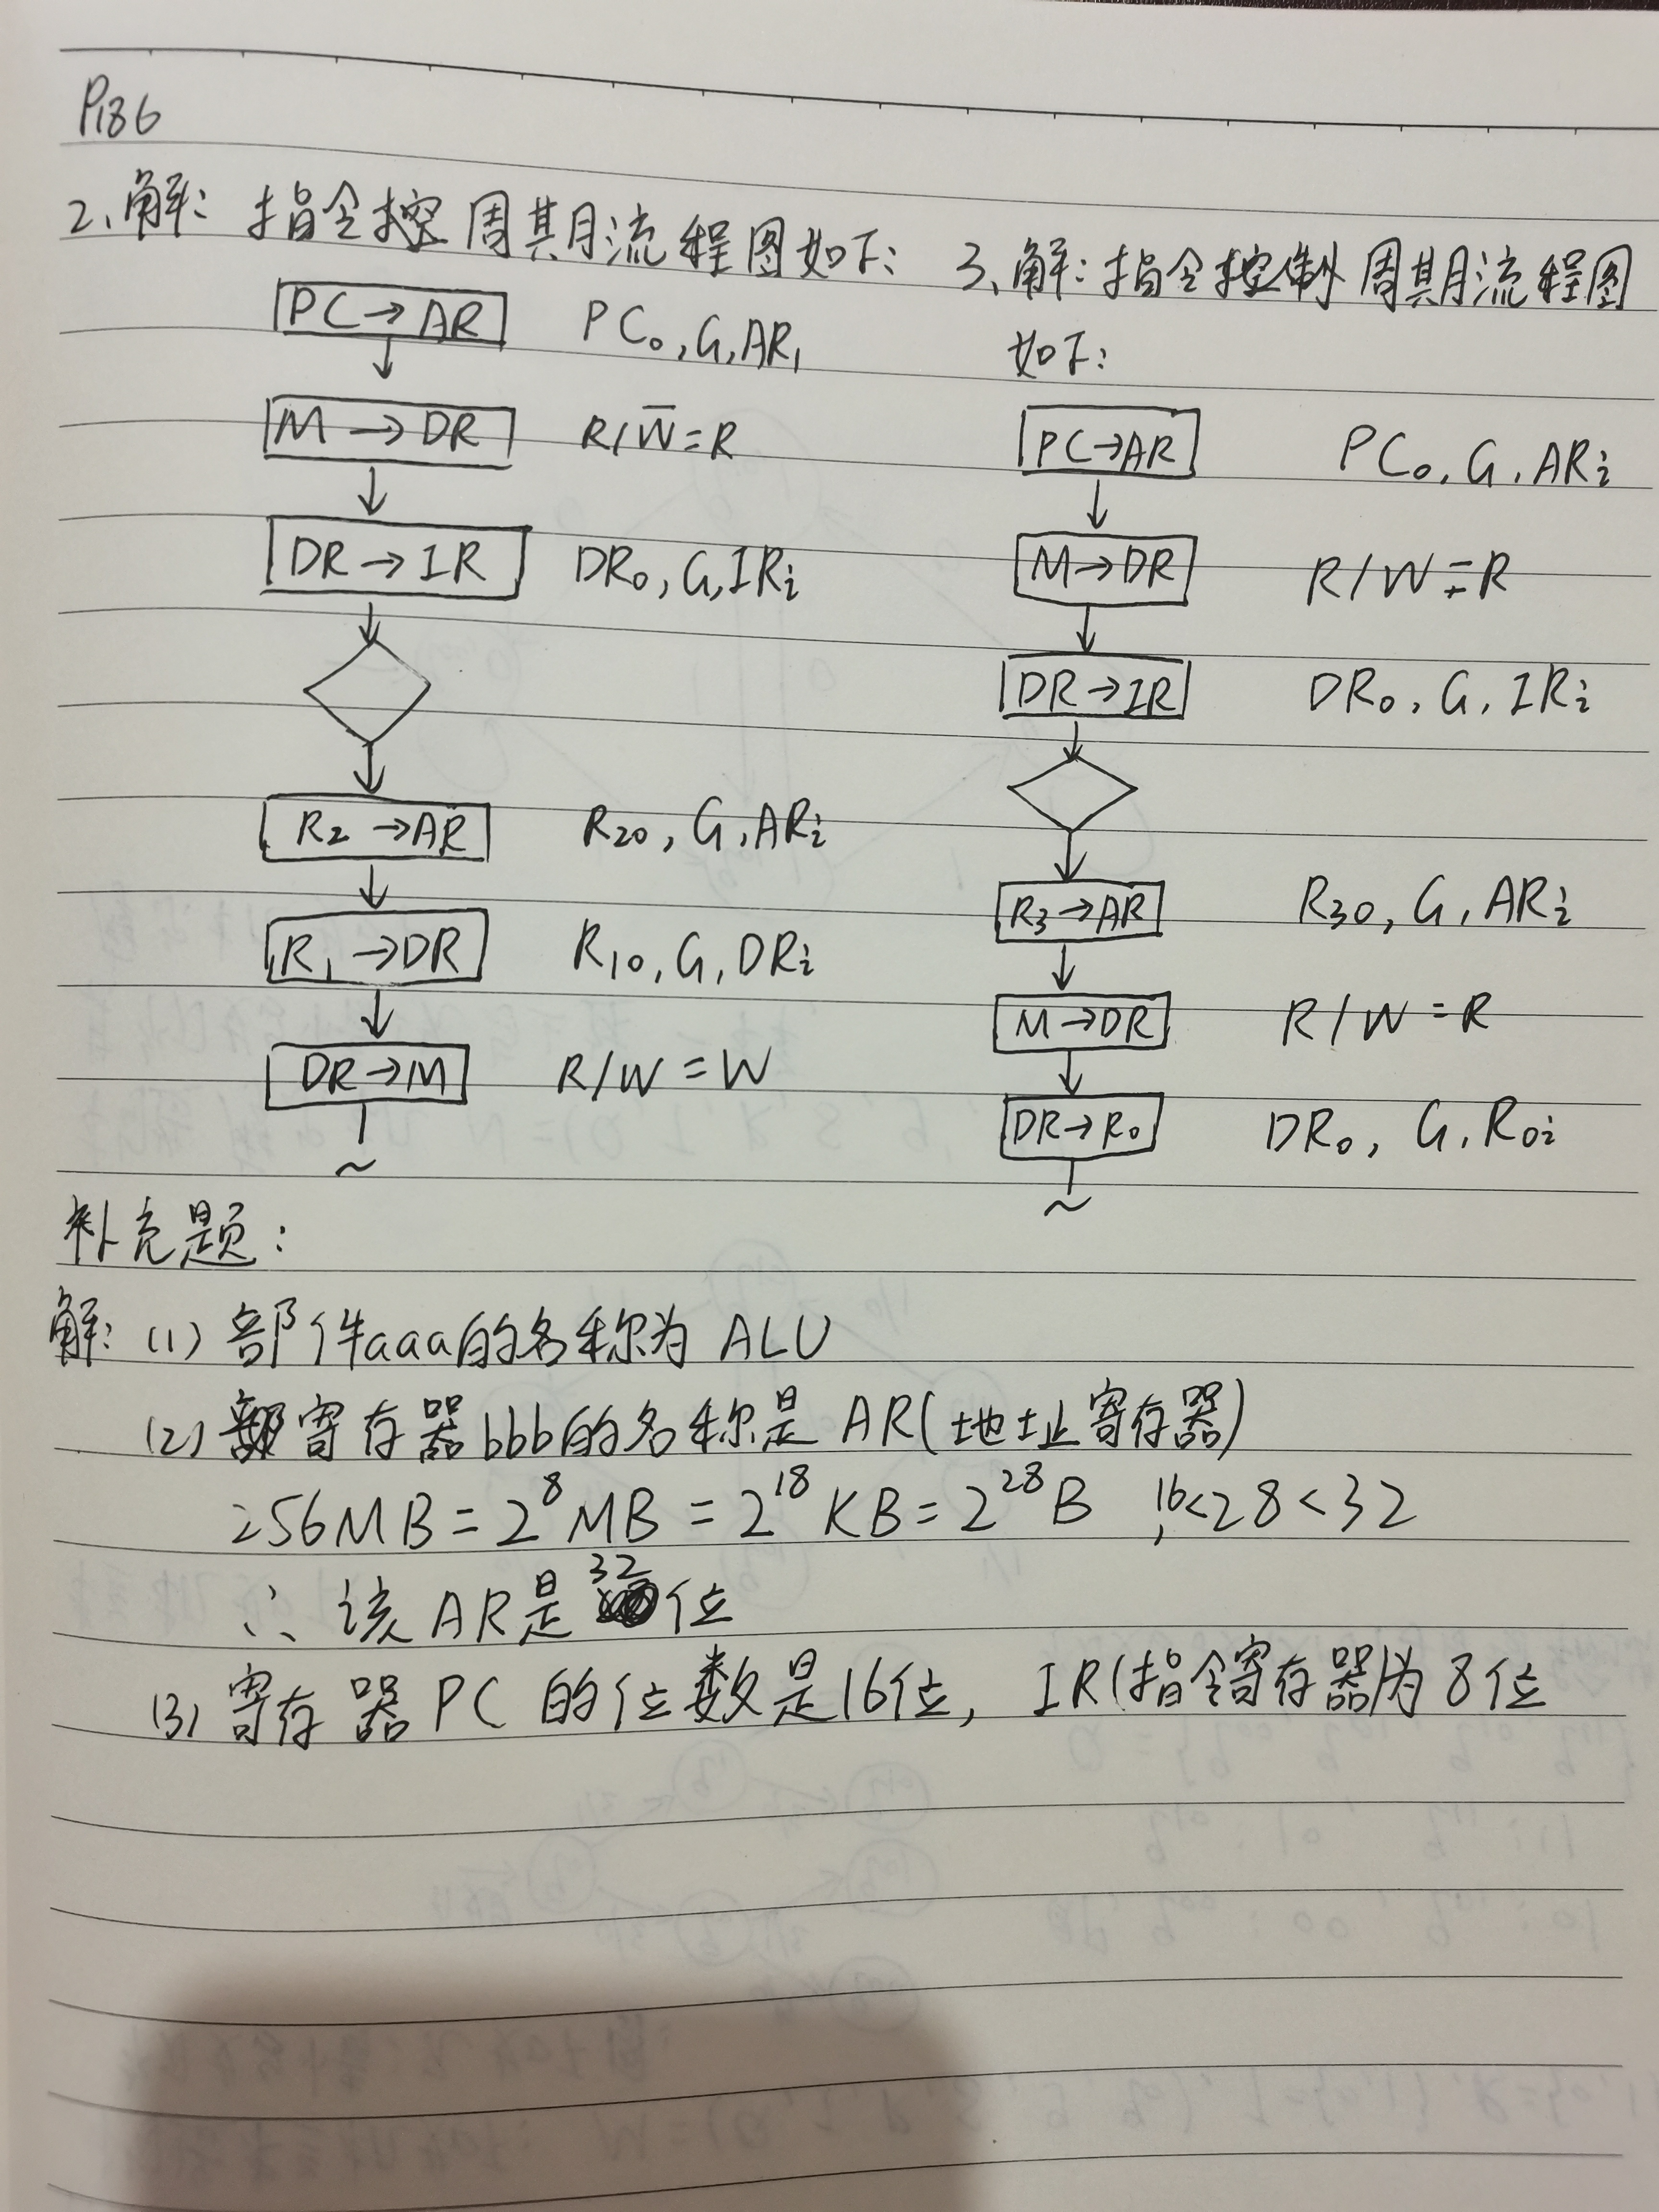 P186
2、解: 指令控周期流程图如下:
PC→AR PC₀,G,AR₁
M→DR R/W̅=R
DR→IR DR₀,G,IRi
R₂→AR R₂₀,G,ARi
R₁→DR R₁₀,G,DRi
DR→M R/W=W
~
3、解:指令控制周期流程图
如下:
PC→AR PC₀,G,ARi
M→DR R/W=R
DR→IR DR₀,G,IRi
R₃→AR R₃₀,G,ARi
M→DR R/W=R
DR→R₀ DR₀,G,R₀i
~
补充题:
解:(1) 部件aaa的名称为ALU
(2) 寄存器bbb的名称是AR(地址寄存器)
256MB=2⁸MB=2¹⁸KB=2²⁸B 16<28<32
∴ 该AR是32位
(3) 寄存器PC的位数是16位, IR(指令寄存器)为8位